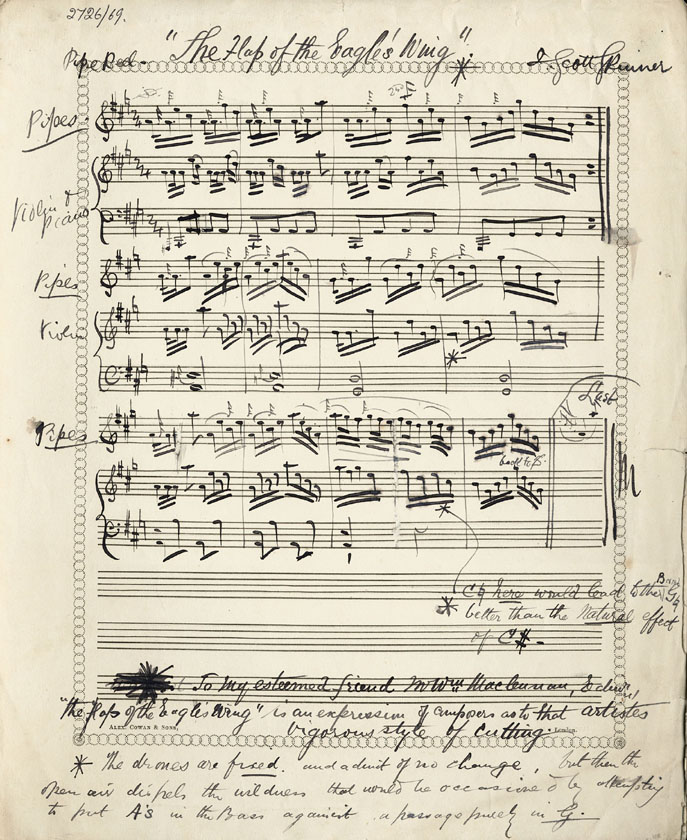 2726/69.
Pipe Reel - "The Flap of the Eagle's Wing". J. Scott Skinner
Pipes.
Violin &
Piano
Pipes
Violin
Last
Pipes
back to
C♮ here would lead to the Bass G♮
better than the Natural effect
of C♯.
To my esteemed friend Mr Wm MacLennan, Edinr,
"The Flap of the Eagles Wing" is an expression of composers as to that artistes
ALEX. COWAN & SONS, London.
vigorous style of cutting.
* The drones are fixed. and admit of no change, but then the
open air dispels the wildness that would be occasioned by attempting
to put A's in the Bass against a passage purely in G.